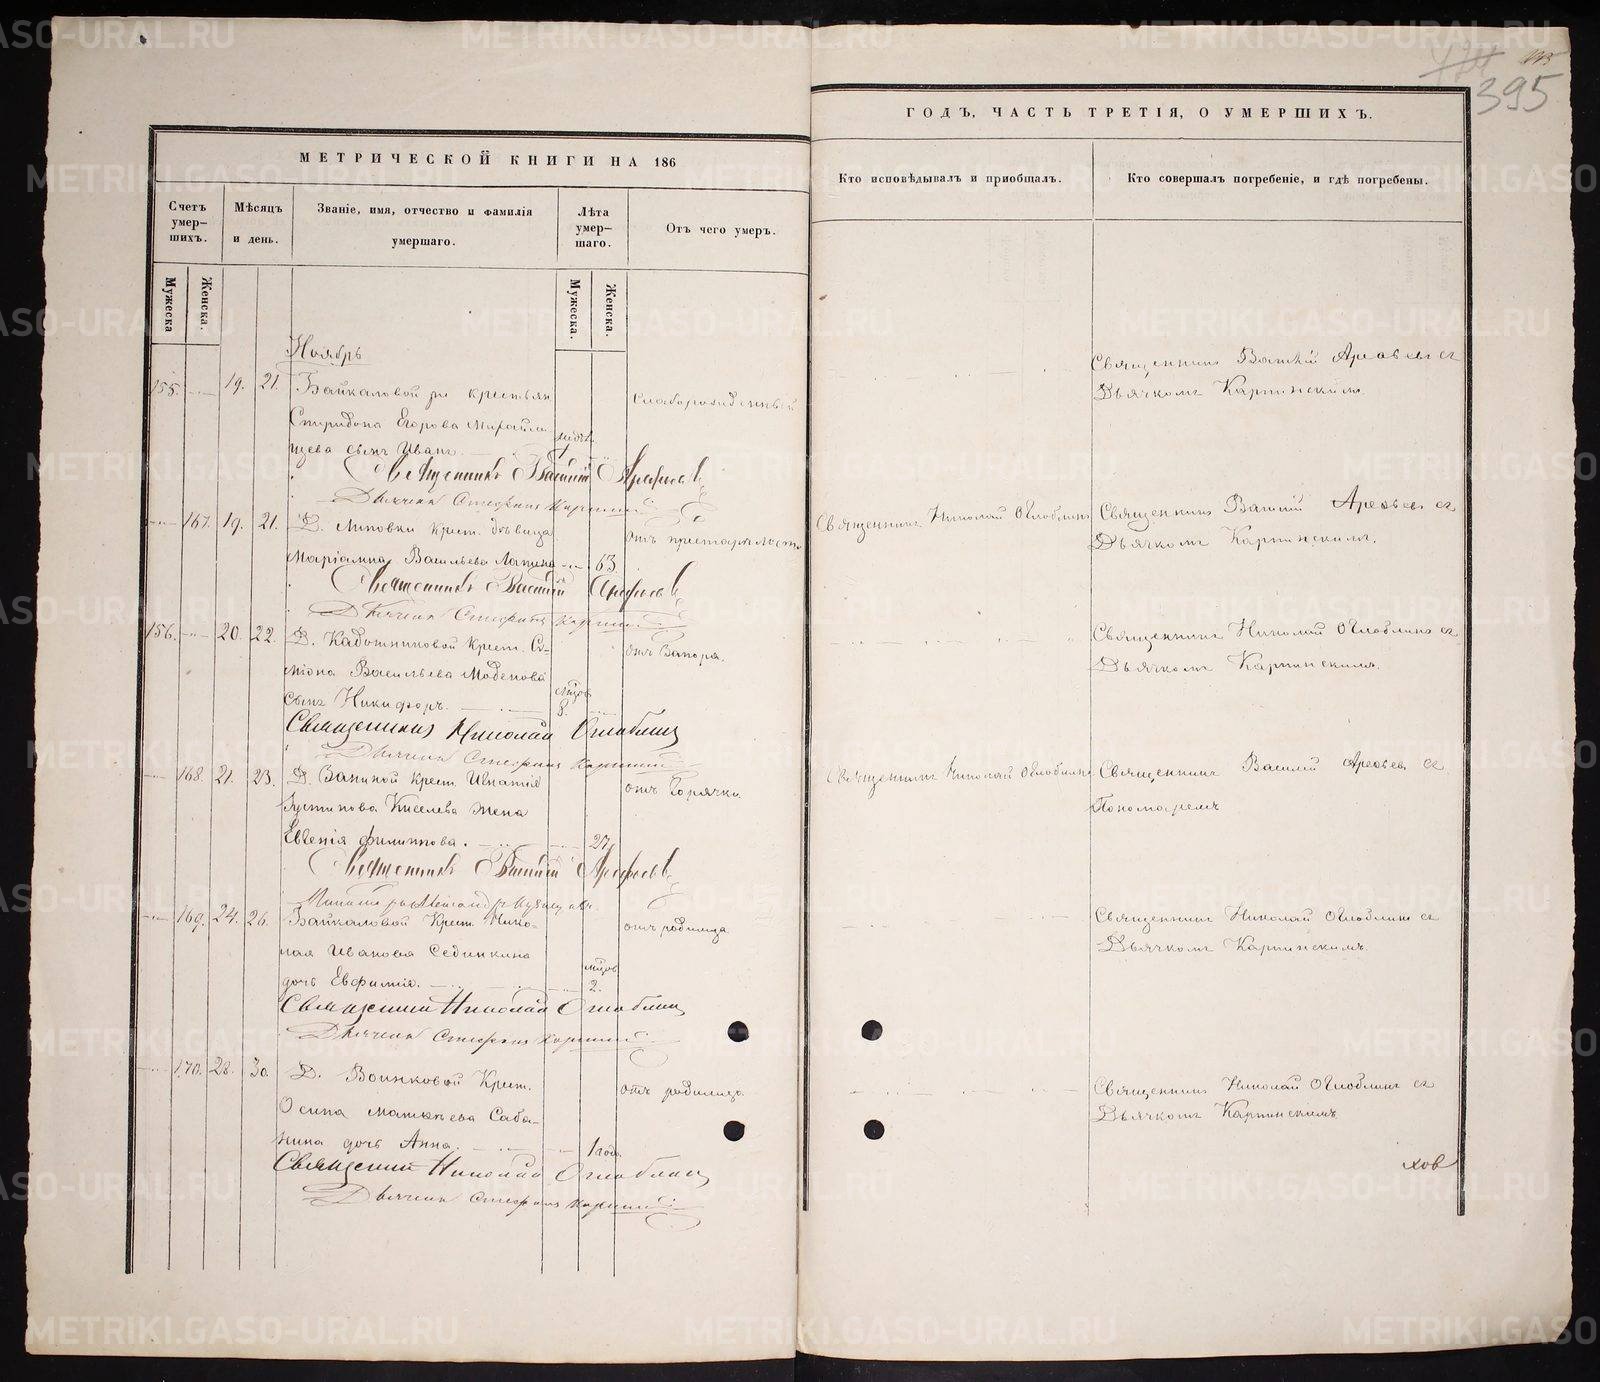 395
МЕТРИЧЕСКОЙ КНИГИ НА 186
ГОДЪ, ЧАСТЬ ТРЕТІЯ, О УМЕРШИХЪ.
Счетъ умер-
шихъ.
Мѣсяцъ
и день.
Званіе, имя, отчество и фамилія
умершаго.
Лѣта
умер-
шаго.
Отъ чего умеръ.
Кто исповѣдывалъ и приобщалъ.
Кто совершалъ погребеніе, и гдѣ погребены.
Мужеска
Женска.
Мужеска.
Женска.
Ноябрь
155. 19. 21. Байкаловой крестьян
Спиридона Егорова
сынъ Иванъ.
слаборожденный
Священникъ Василій Арефьевъ съ
Дьячкомъ Карпинскимъ
Священникъ Василій Арефьевъ
Дьячекъ Стефанъ
167. 19. 21. Д. Липовки крест. дѣвица
Маріамна Васильева 63.
отъ престарѣлости
Священникъ Николай Оглоблинъ
Священникъ Василій Арефьевъ съ
Дьячкомъ Карпинскимъ.
Священникъ Василій Арефьевъ
Дьячекъ Стефанъ
156. 20. 22. Д. Кадошниковой Крест. Си-
міона Васильева Моденова
сынъ Никифоръ. 8.
отъ Запора.
Священникъ Николай Оглоблинъ съ
Дьячкомъ Карпинскимъ.
Священникъ Николай Оглоблинъ
Дьячекъ Стефанъ
168. 21. 23. Д. Вагиной Крест. Игнатія
Іустинова Киселева жена
Евгенія Филиппова. 27.
отъ Горячки
Священникъ Николай Оглоблинъ
Священникъ Василій Арефьевъ съ
Пономаремъ
Священникъ Василій Арефьевъ
169. 24. 26. Байкаловой Крест. Нико-
лая Иванова Сединкина
дочь Евфимія. 2.
отъ родимца
Священникъ Николай Оглоблинъ съ
Дьячкомъ Карпинскимъ.
Священникъ Николай Оглоблинъ
Дьячекъ Стефанъ
170. 28. 30. Д. Воинковой Крест.
Осипа Матвѣева Саба-
нина дочь Анна. 1 годъ
отъ родимца.
Священникъ Николай Оглоблинъ съ
Дьячкомъ Карпинскимъ
Священникъ Николай Оглоблинъ
Дьячекъ Стефанъ
ховъ
METRIKI.GASO-URAL.RU